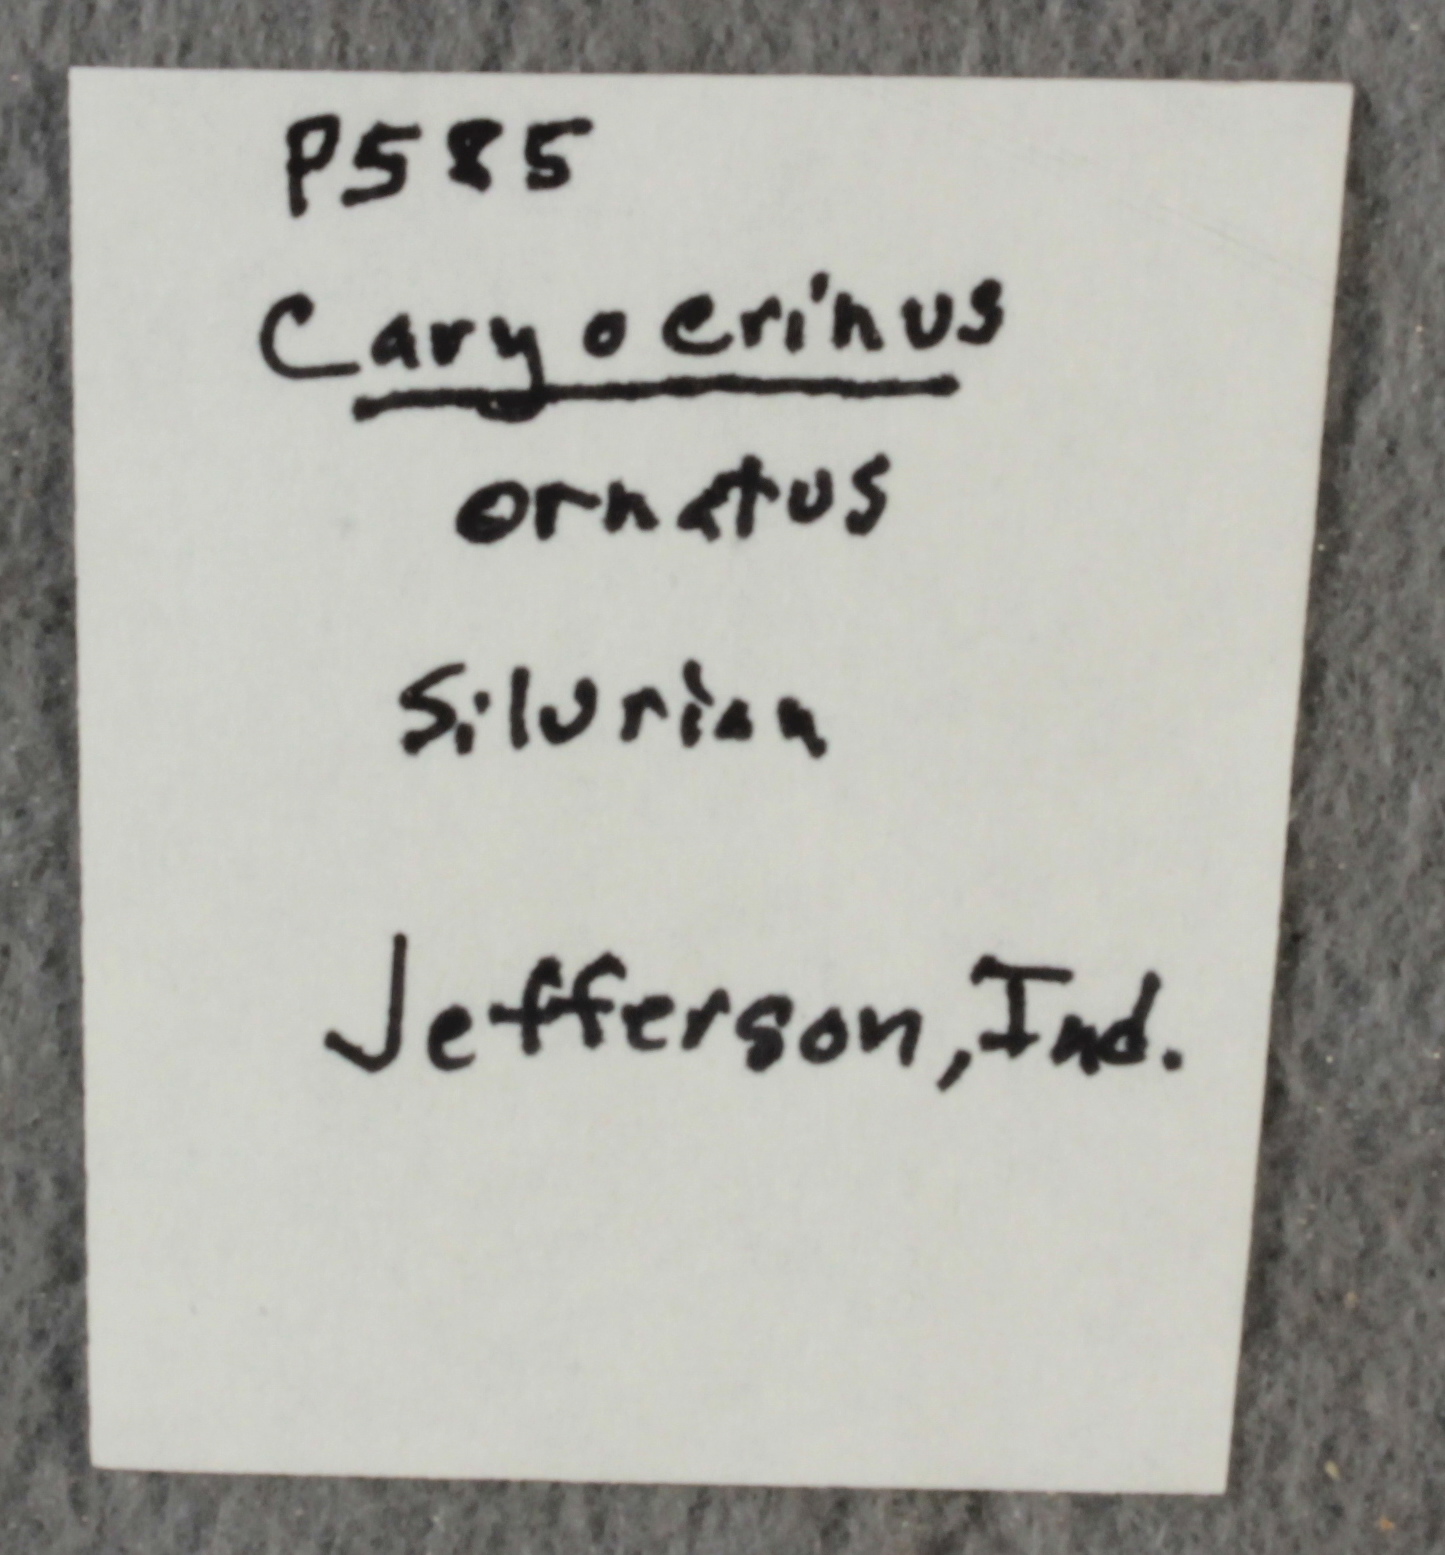 P585
Caryocrinus
ornatus
Silurian
Jefferson, Ind.